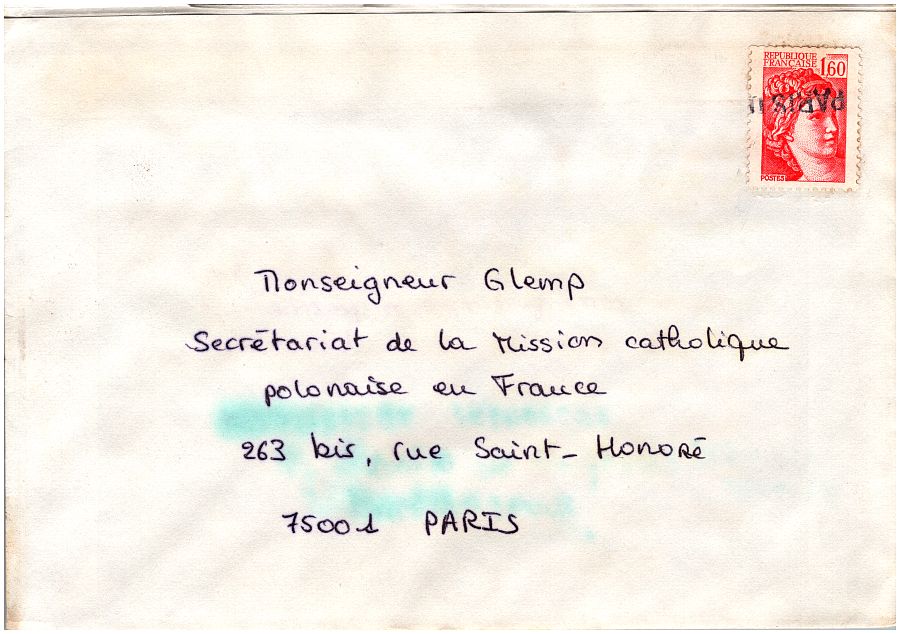 REPUBLIQUE
FRANCAISE 1,60
PARIS
POSTES
Monseigneur Glemp
Secrétariat de la Mission catholique
polonaise en France
263 bis, rue Saint-Honoré
75001 PARIS